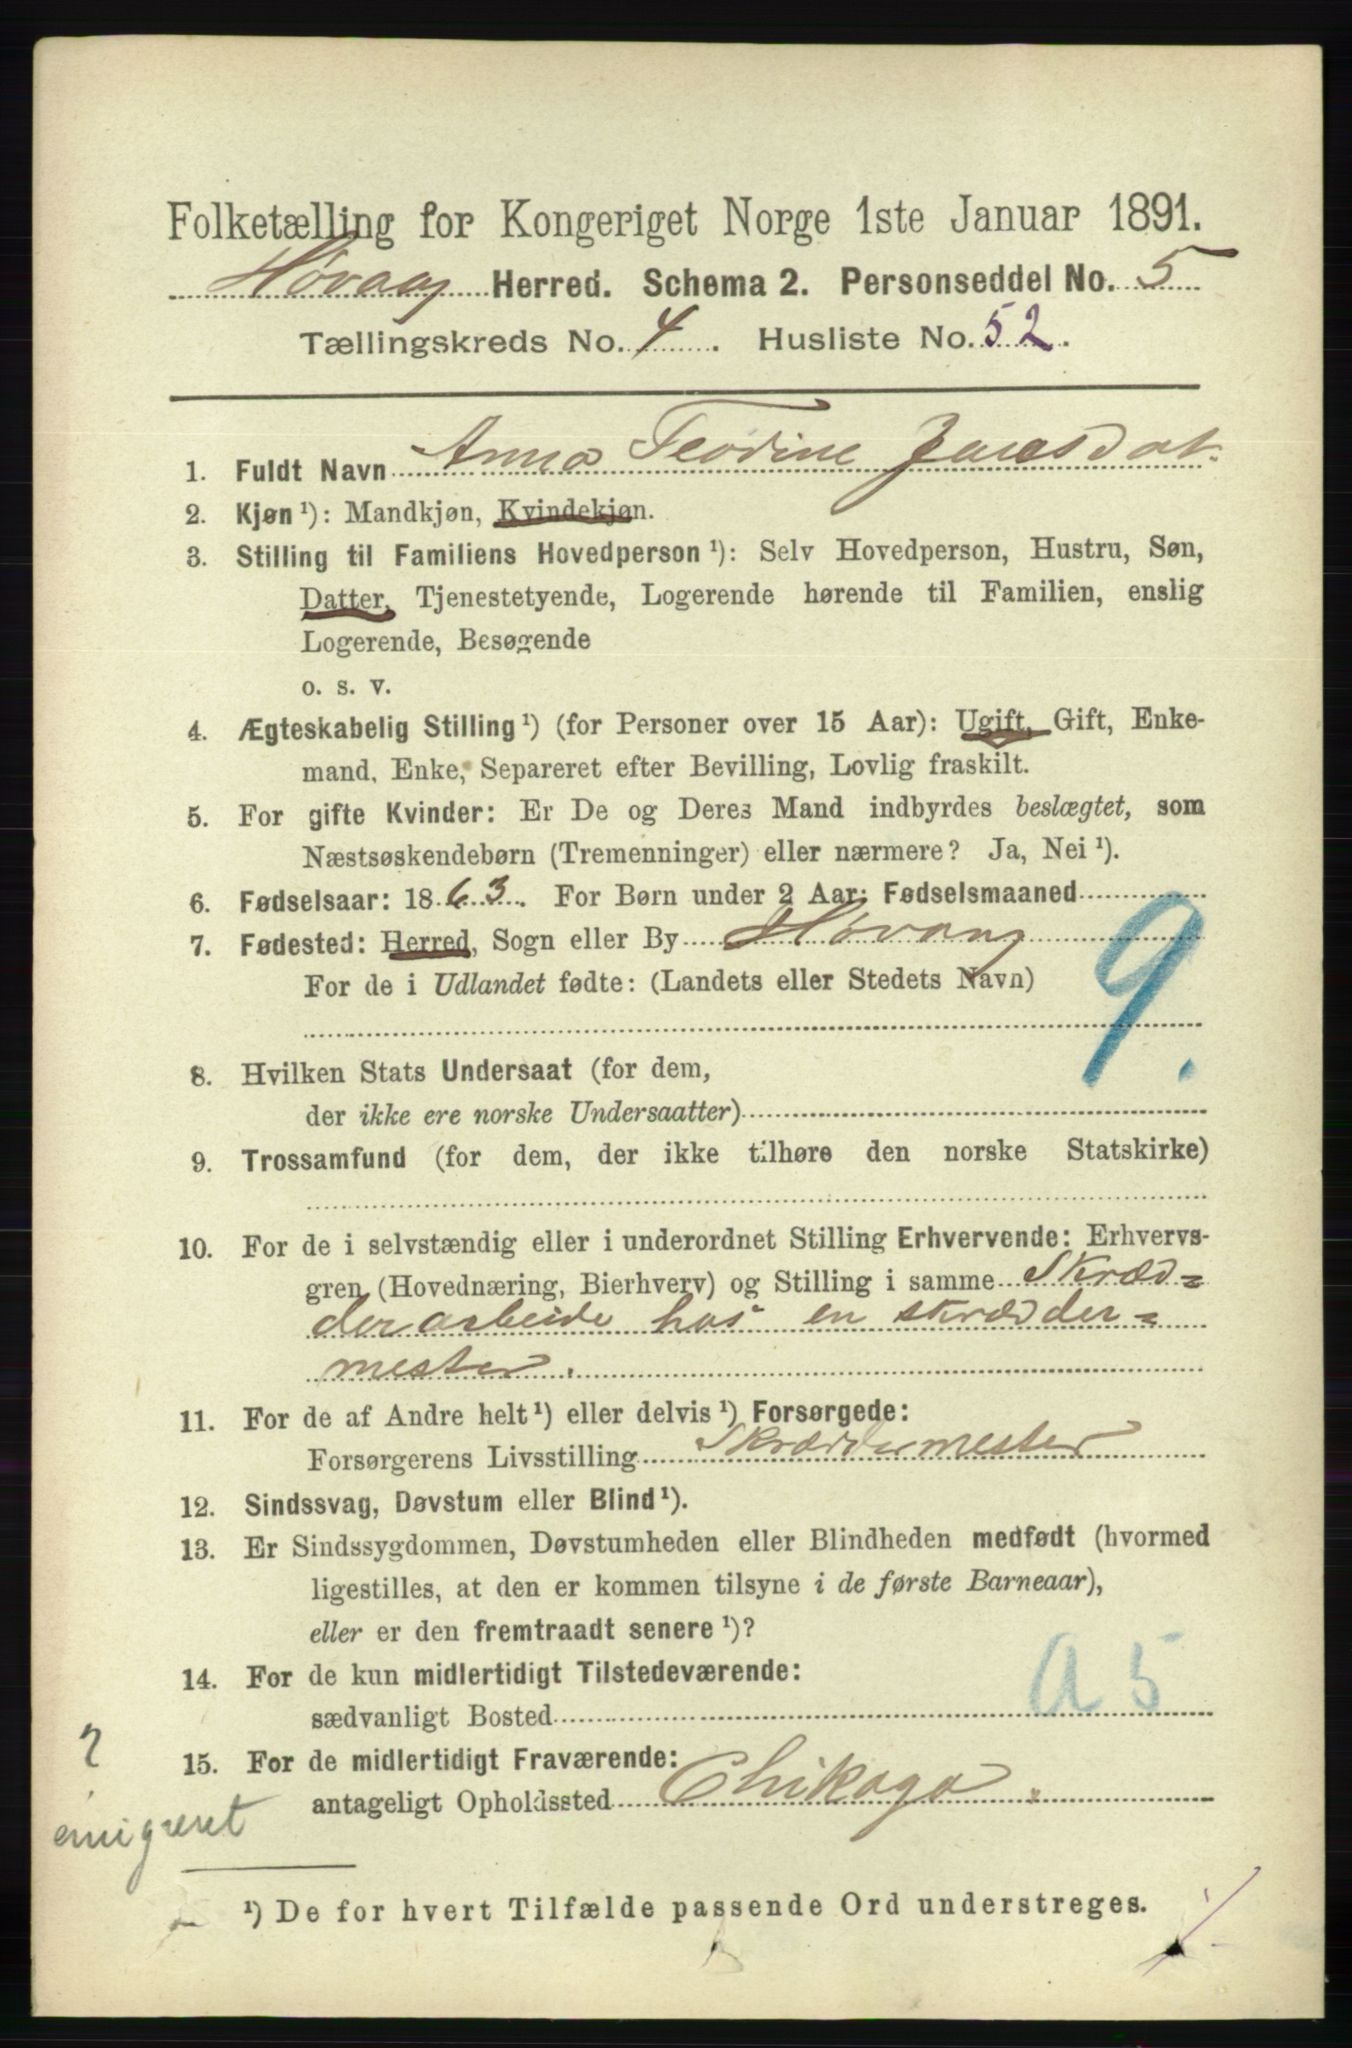 Folketælling for Kongeriget Norge 1ste Januar 1891.
Høvaag Herred. Schema 2. Personseddel No. 5
Tællingskreds No. 4. Husliste No. 52.
1. Fuldt Navn Anna Teodine Jensdat.
2. Kjøn ¹): Mandkjøn, Kvindekjøn.
3. Stilling til Familiens Hovedperson ¹): Selv Hovedperson, Hustru, Søn,
Datter, Tjenestetyende, Logerende hørende til Familien, enslig
Logerende, Besøgende
o. s. v.
4. Ægteskabelig Stilling ¹) (for Personer over 15 Aar): Ugift, Gift, Enke-
mand, Enke, Separeret efter Bevilling, Lovlig fraskilt.
5. For gifte Kvinder: Er De og Deres Mand indbyrdes beslægtet, som
Næstsøskendebørn (Tremenninger) eller nærmere? Ja, Nei ¹).
6. Fødselsaar: 1863. For Børn under 2 Aar: Fødselsmaaned
7. Fødested: Herred, Sogn eller By Høvaag
For de i Udlandet fødte: (Landets eller Stedets Navn)
9.
8. Hvilken Stats Undersaat (for dem,
der ikke ere norske Undersaatter)
9. Trossamfund (for dem, der ikke tilhøre den norske Statskirke)
10. For de i selvstændig eller i underordnet Stilling Erhvervende: Erhvervs-
gren (Hovednæring, Bierhverv) og Stilling i samme Skræd=
derarbeide hos en skrædder=
mester.
11. For de af Andre helt ¹) eller delvis ¹) Forsørgede:
Forsørgerens Livsstilling Skræddermester
12. Sindssvag, Døvstum eller Blind ¹).
13. Er Sindssygdommen, Døvstumheden eller Blindheden medfødt (hvormed
ligestilles, at den er kommen tilsyne i de første Barneaar),
eller er den fremtraadt senere ¹)?
14. For de kun midlertidigt Tilstedeværende:
sædvanligt Bosted
a 5
15. For de midlertidigt Fraværende:
antageligt Opholdssted Chikago.
?
emigreret
¹) De for hvert Tilfælde passende Ord understreges.